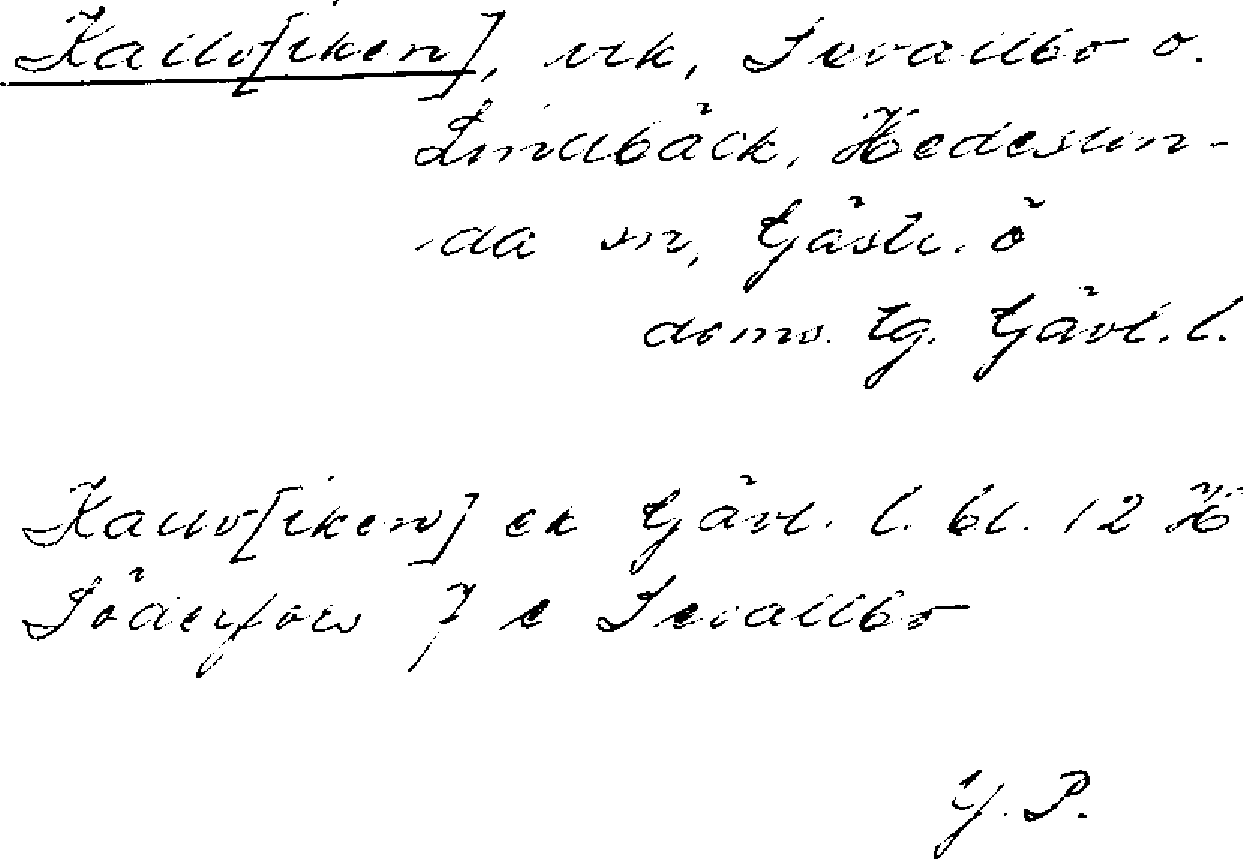 Kallv[iken], vik, Sevallbo o.
Lindbäck, Hedesun-
da sn, Gästr. ö
doms. tg. Gävl. l.
Kallv[iken] ek Gävl. l. bl. 12 H
Söderfors 7 e Sevallbo
G. P.